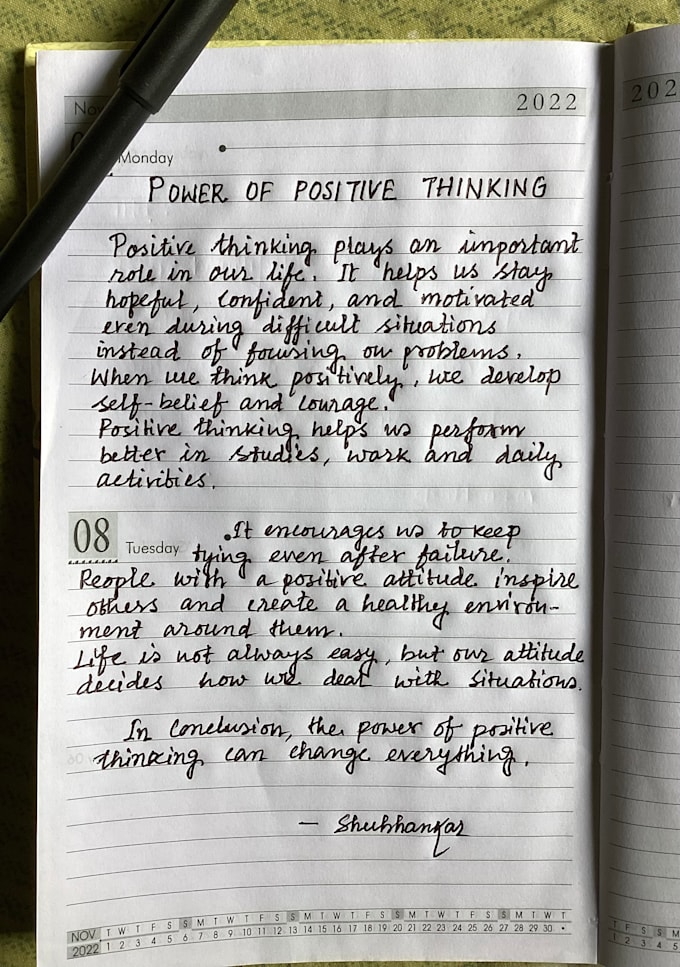 2022
202
Monday
POWER OF POSITIVE THINKING
Positive thinking plays an important
role in our life. It helps us stay
hopeful, confident, and motivated
even during difficult situations
instead of focusing on problems.
When we think positively, we develop
self-belief and courage.
Positive thinking helps us perform
better in studies, work and daily
activities.
08 Tuesday
.It encourages us to keep
tying even after failure.
People with a positive attitude inspire
others and create a healthy environ-
ment around them.
Life is not always easy, but our attitude
decides how we deal with situations.
In Conclusion, the power of positive
thinking can change everything.
— Shubhankar
NOV T W T F S S M T W T F S S M T W T F S S M T W T F S S M T W T
2022 1 2 3 4 5 6 7 8 9 10 11 12 13 14 15 16 17 18 19 20 21 22 23 24 25 26 27 28 29 30 •
T F S S M
1 2 3 4 5